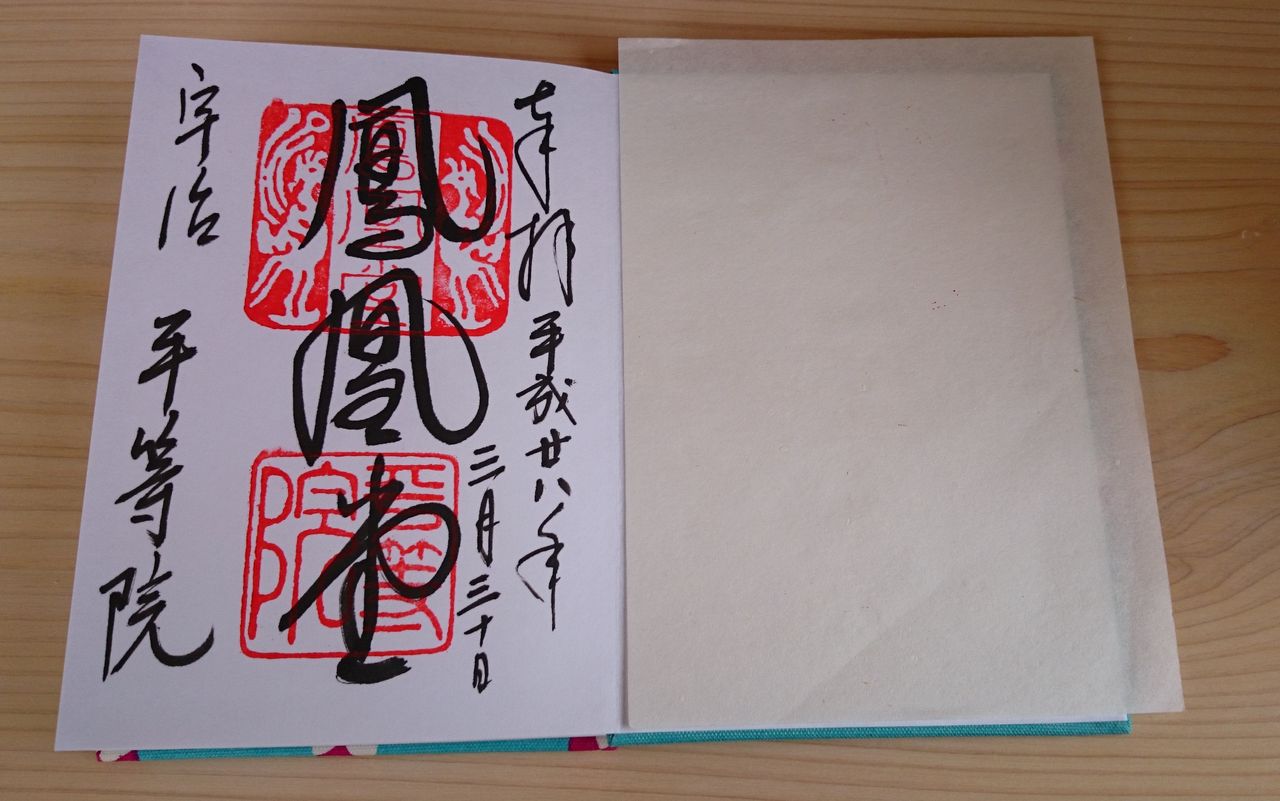 奉拝 平成廿八年
三月三十日
鳳凰堂
宇治 平等院
鳳凰堂
平等院